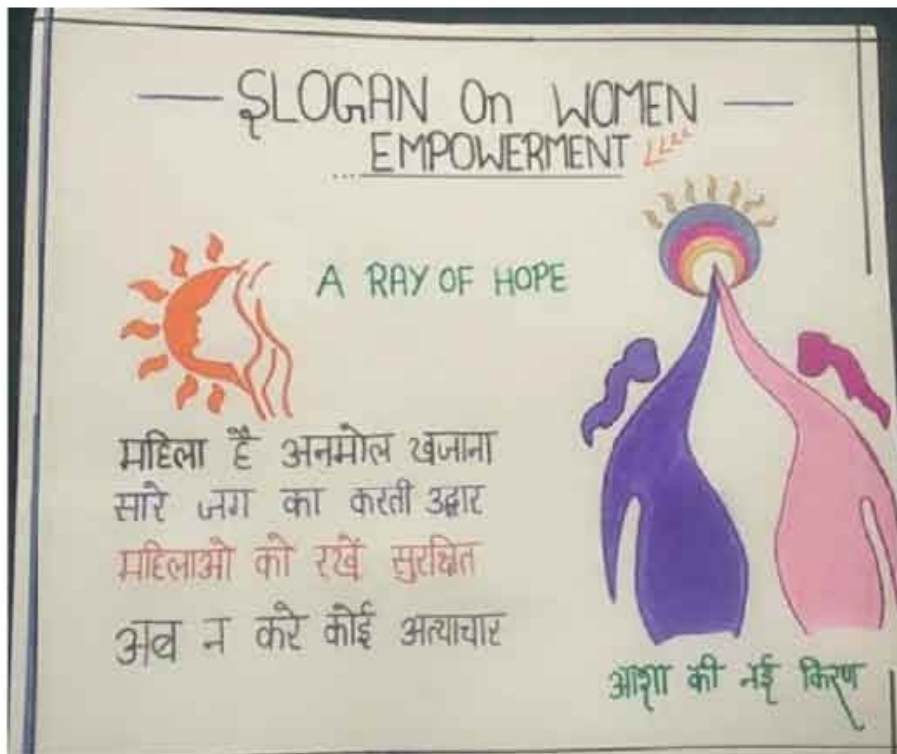 SLOGAN On WOMEN
EMPOWERMENT
A RAY OF HOPE
महिला है अनमोल खजाना
सारे जग का करती उद्धार
महिलाओ को रखें सुरक्षित
अब न करे कोई अत्याचार
आशा की नई किरण